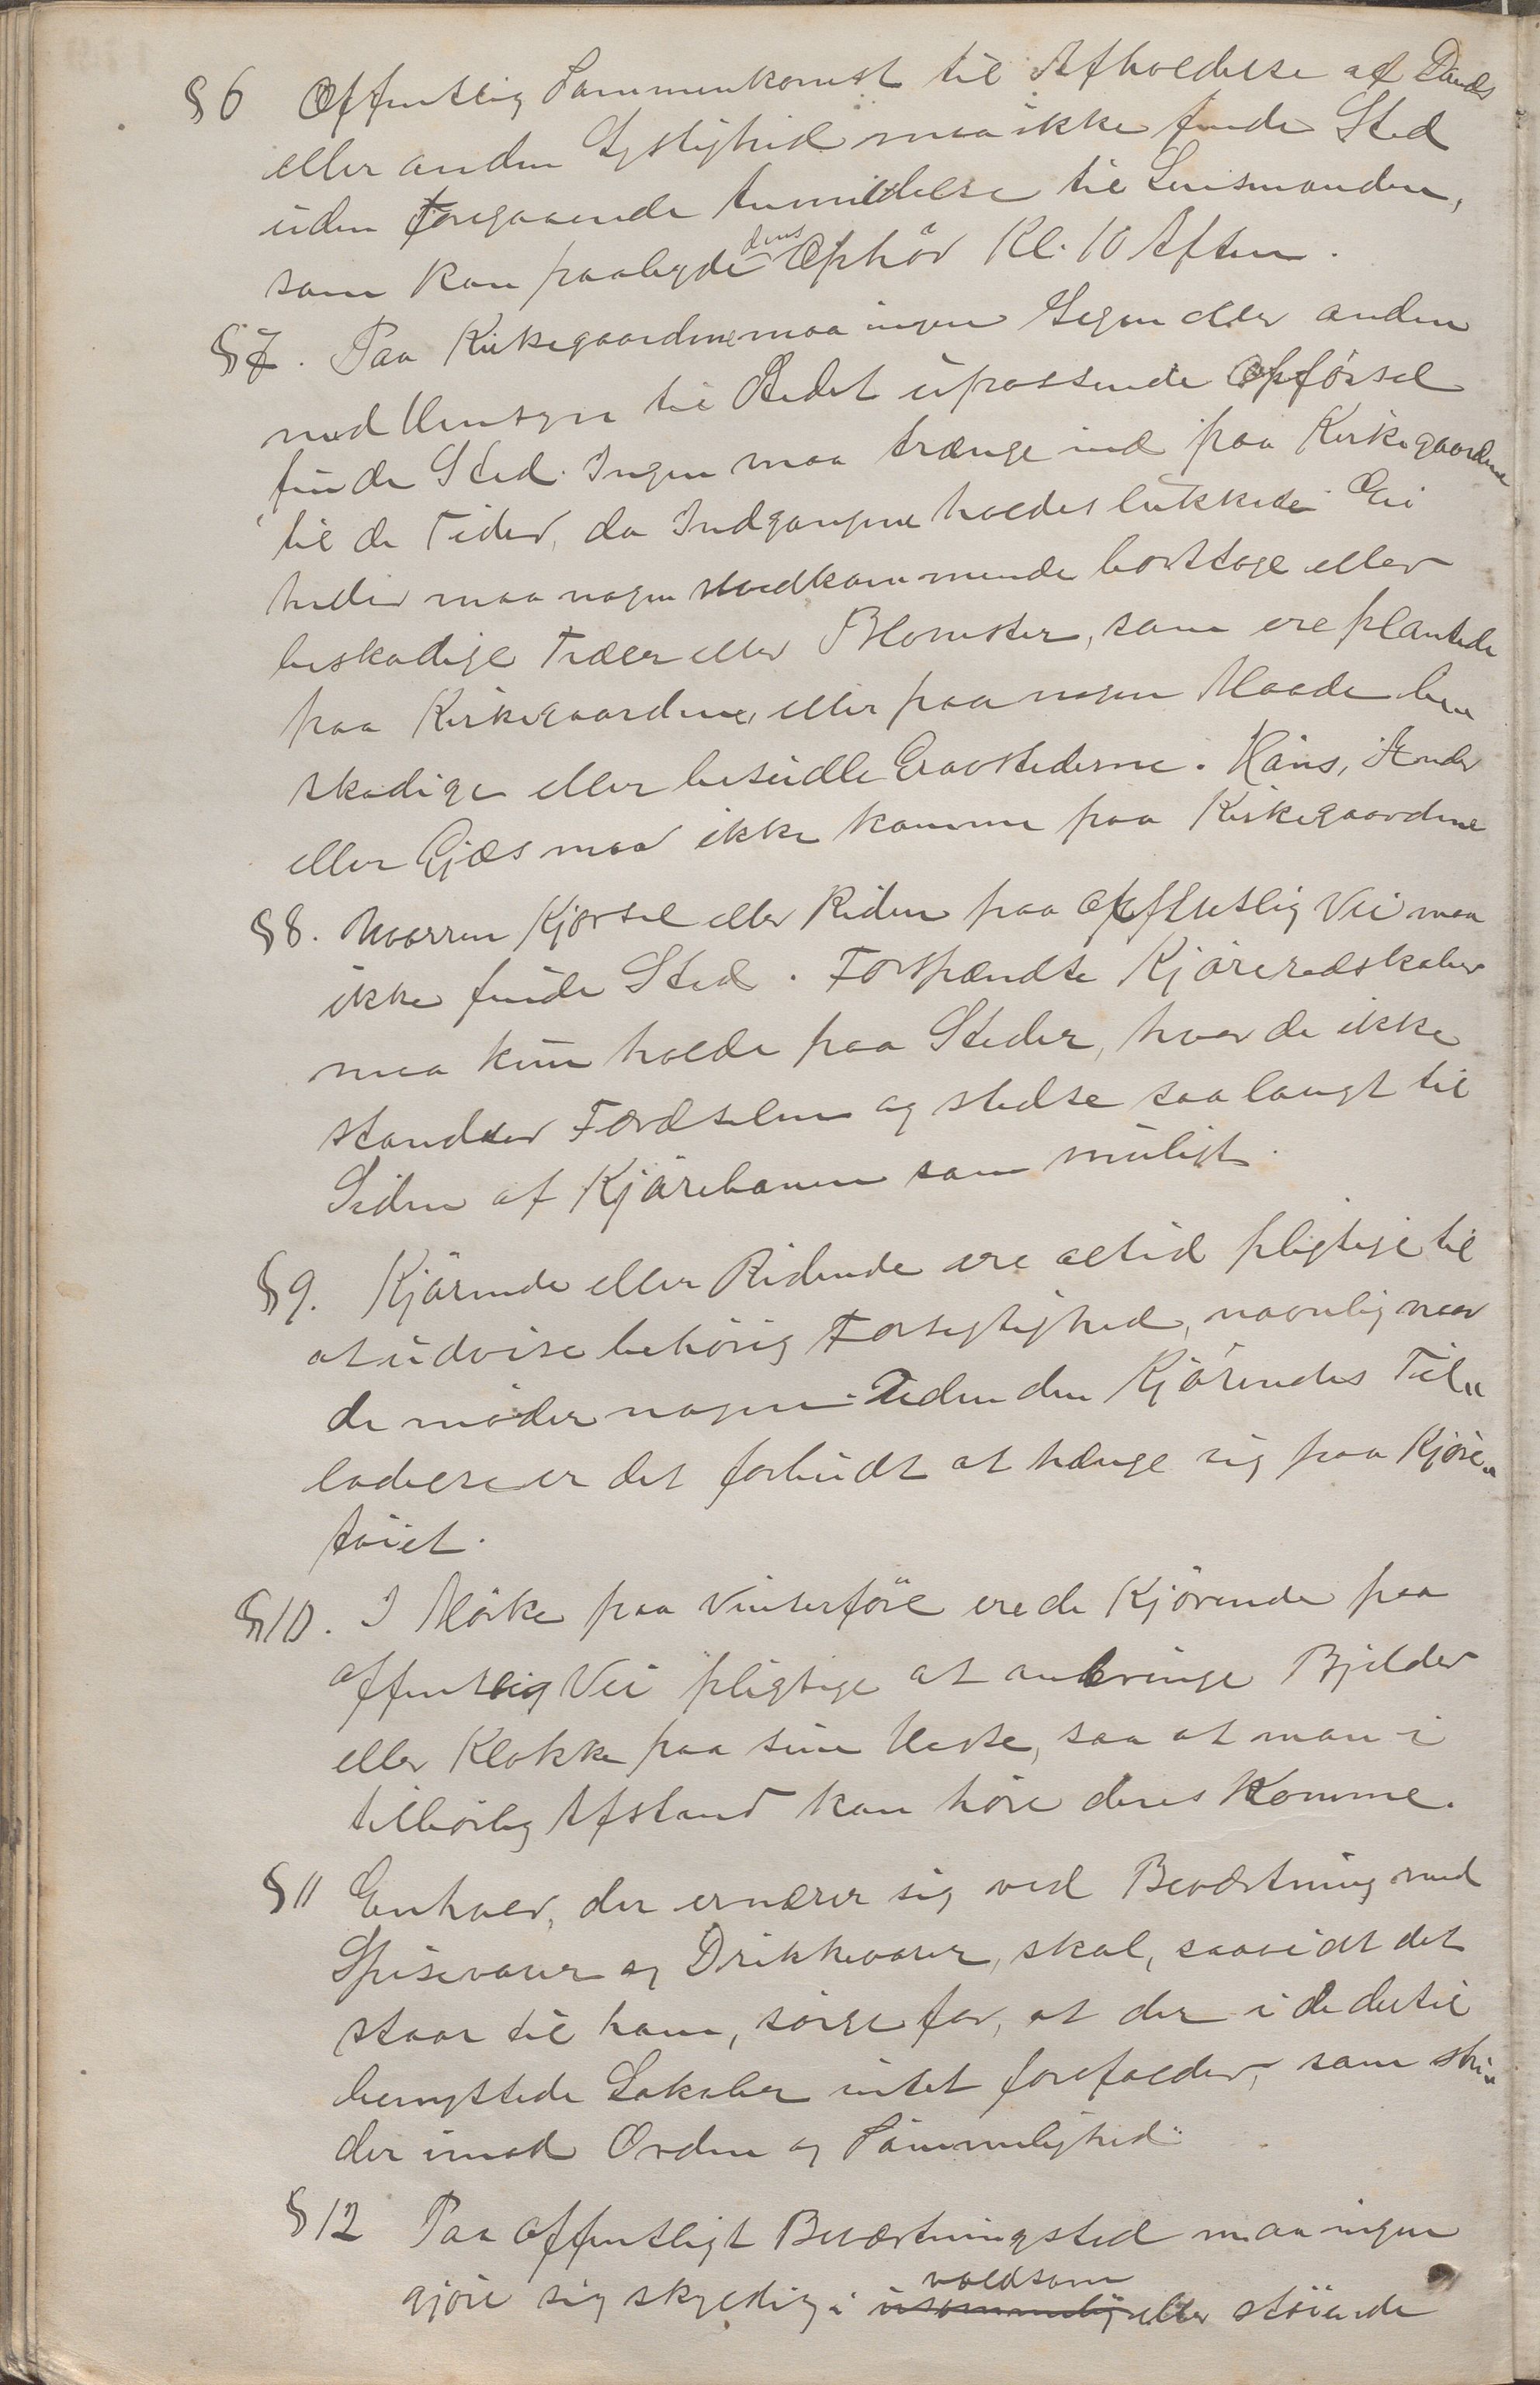 §6 Offentlig Sammenkomst til Afholdelse af Dands
eller anden Lystighed maa ikke finde Sted
uden foregaaende Anmeldelse til Lensmanden,
som kan paabyde dens Ophör Kl. 10 Aften.
§7. Paa Kirkegaardene maa ingen Legen eller anden
med Hensyn til Stedet upassende Opförsel
finde Sted. Ingen maa trænge ind paa Kirkegaardene
til de Tider, da Indgangene holdes lukkede. Ei
heller maa nogen uvedkommende borttage eller
beskadige Træer eller Blomster, som ere plantede
paa Kirkegaardene, eller paa nogen Maade be„
skadige eller besudle Gravstederne. Höns, Ænder
eller Gjæs maa ikke komme paa Kirkegaardene
§8. Uvorren Kjørsel eller Riden paa offentlig Vei maa
ikke finde Sted. Forspændte Kjöreredskaber
maa kun holde paa Steder, hvor de ikke
standser Færdselen og stedse saa langt til
Siden af Kjörebanen som muligt.
§9. Kjörende eller Ridende ere altid pligtige til
at udvise behörig Forsigtighed, navnlig naar
de möder nogen. Uden den Kjörendes Til„
ladelse er det forbudt at hænge sig paa Kjöre„
töiet.
§10. I Mörke paa Vinterföre ere de Kjörende paa
offentlig Vei pligtige at anbringe Bjelder
eller Klokke paa sine Heste, saa at man i
tilbörlig Afstand kan höre deres Komme.
§11 Enhver, der ernærer sig ved Beværtning med
Spisevarer og Drikkevarer, skal, saavidt det
staar til ham, sörge for, at der i de dertil
benyttede Lokaler intet forefalder, som stri„
der imod Orden og Sömmelighed.
§12 Paa offentligt Beværtningsted maa ingen
gjöre sig skyldig i usömmelig voldsom eller støiende